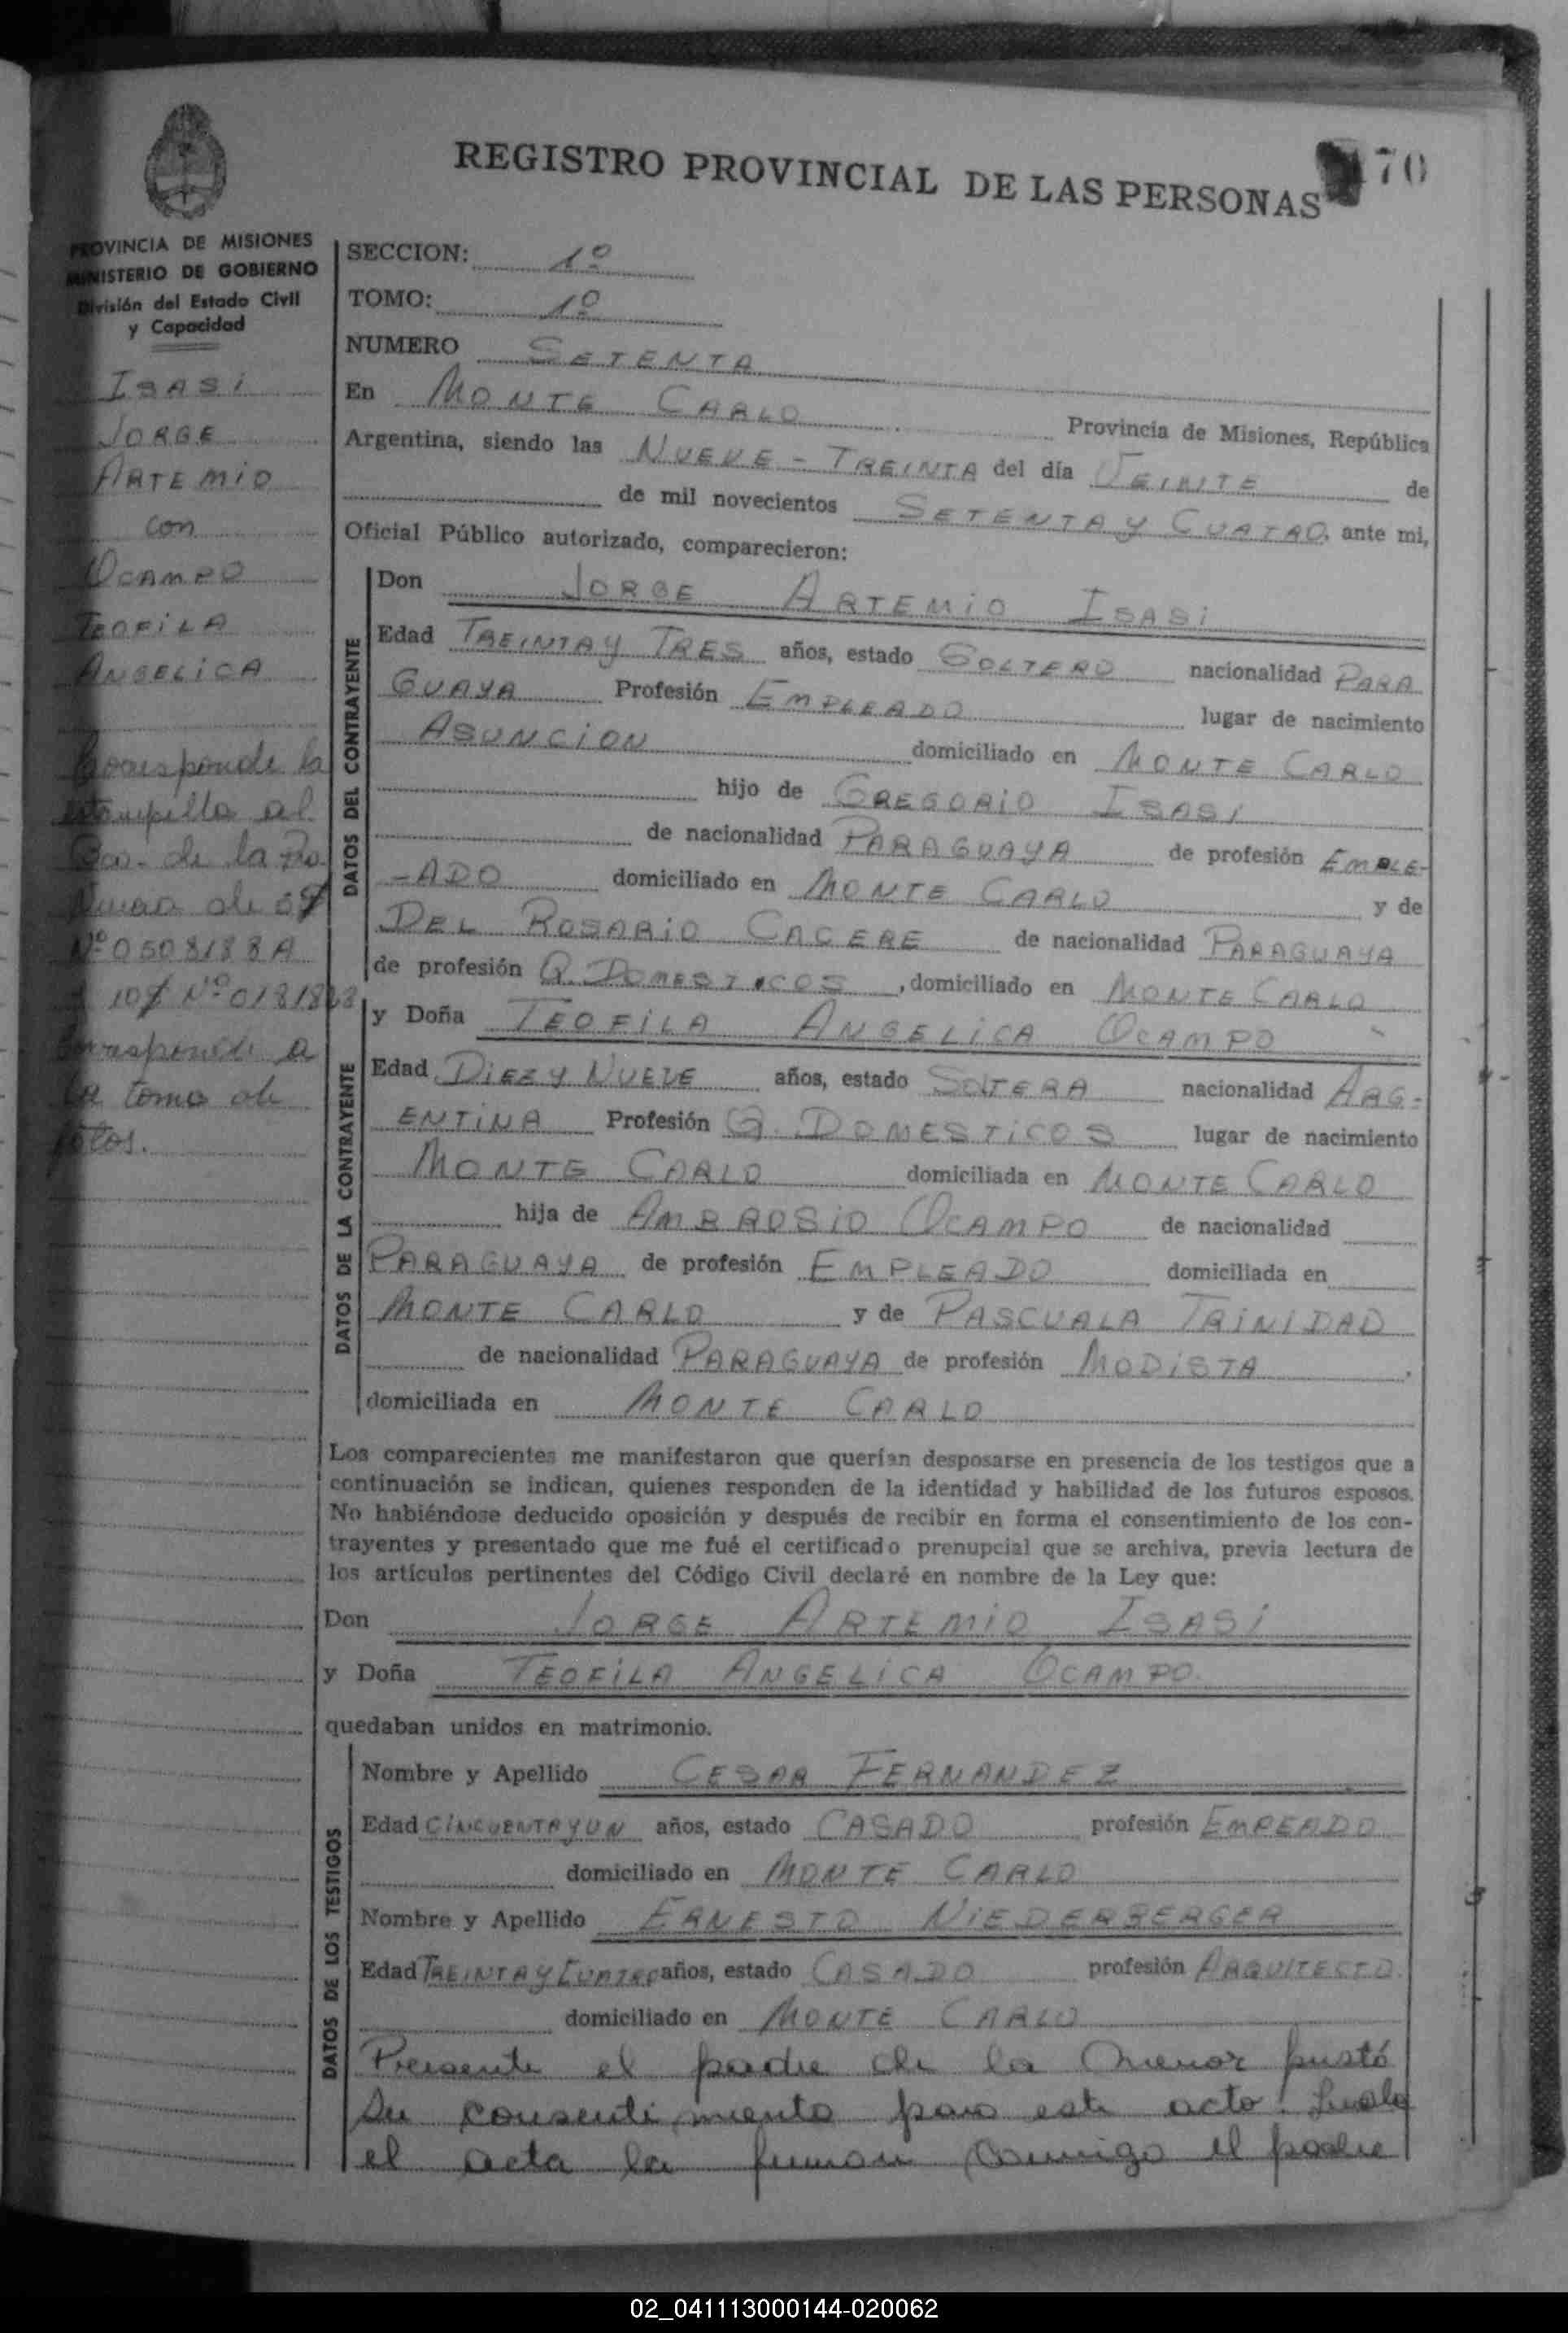 REGISTRO PROVINCIAL DE LAS PERSONAS
70
PROVINCIA DE MISIONES
MINISTERIO DE GOBIERNO
División del Estado Civil
y Capacidad
ISASI
JORGE
ARTEMIO
con
OCAMPO
TEOFILA
ANGELICA
Corresponde la
estampilla al
de la
de 5$
Nº 0508188A
10$ Nº 0181813
corresponde a
la toma de
fotos.
SECCION: 1º
TOMO: 1º
NUMERO SETENTA
En MONTE CARLO Provincia de Misiones, República
Argentina, siendo las NUEVE - TREINTA del día VEINTE de
de mil novecientos SETENTA Y CUATRO, ante mi,
Oficial Público autorizado, comparecieron:
DATOS DEL CONTRAYENTE
Don JORGE ARTEMIO ISASI
Edad TREINTA Y TRES años, estado SOLTERO nacionalidad PARA
GUAYA Profesión EMPLEADO lugar de nacimiento
ASUNCION domiciliado en MONTE CARLO
hijo de GREGORIO ISASI
de nacionalidad PARAGUAYA de profesión EMPLE-
-ADO domiciliado en MONTE CARLO y de
DEL ROSARIO CACERE de nacionalidad PARAGUAYA
de profesión Q. DOMESTICOS, domiciliado en MONTE CARLO
DATOS DE LA CONTRAYENTE
y Doña TEOFILA ANGELICA OCAMPO
Edad DIEZ Y NUEVE años, estado SOLTERA nacionalidad ARG-
ENTINA Profesión Q. DOMESTICOS lugar de nacimiento
MONTE CARLO domiciliada en MONTE CARLO
hija de AMBROSIO OCAMPO de nacionalidad
PARAGUAYA de profesión EMPLEADO domiciliada en
MONTE CARLO y de PASCUALA TRINIDAD
de nacionalidad PARAGUAYA de profesión MODISTA.
domiciliada en MONTE CARLO
Los comparecientes me manifestaron que querían desposarse en presencia de los testigos que a
continuación se indican, quienes responden de la identidad y habilidad de los futuros esposos.
No habiéndose deducido oposición y después de recibir en forma el consentimiento de los con-
trayentes y presentado que me fué el certificado prenupcial que se archiva, previa lectura de
los artículos pertinentes del Código Civil declaré en nombre de la Ley que:
Don JORGE ARTEMIO ISASI
y Doña TEOFILA ANGELICA OCAMPO
quedaban unidos en matrimonio.
DATOS DE LOS TESTIGOS
Nombre y Apellido CESAR FERNANDEZ
Edad CINCUENTA Y UN años, estado CASADO profesión EMPEADO
domiciliado en MONTE CARLO
Nombre y Apellido ERNESTO NIEDERBERGER
Edad TREINTA Y CUATRO años, estado CASADO profesión ARQUITECTO.
domiciliado en MONTE CARLO
Presente el padre de la menor prestó
su consentimiento para este acto. Leída
el acta la firman conmigo el padre
02_041113000144-020062